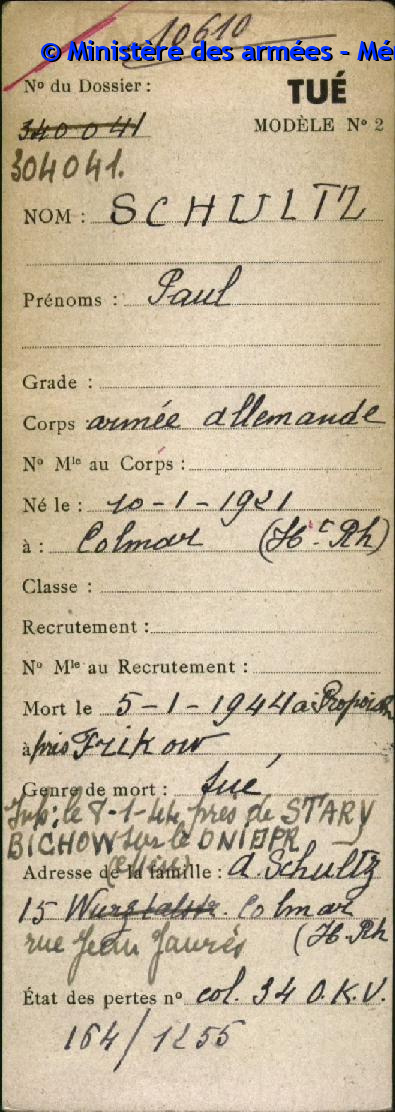 10610
© Ministère des armées - Mé
Nº du Dossier :
TUÉ
340041
MODÈLE Nº 2
304041.
NOM : SCHULTZ
Prénoms : Paul
Grade :
Corps armée allemande
Nº Mle au Corps :
Né le : 10-1-1921
à : Colmar (Ht Rh)
Classe :
Recrutement :
Nº Mle au Recrutement :
Mort le 5-1-1944 à
à près Frikow
Genre de mort : tué
le 8-1-44 près de STARY
BICHOW sur le DNIEPR
Adresse de la famille : A. Schultz
15 Colmar
rue Jean Jaurès (H. Rh
État des pertes nº col. 34 O.K.V.
164/1255